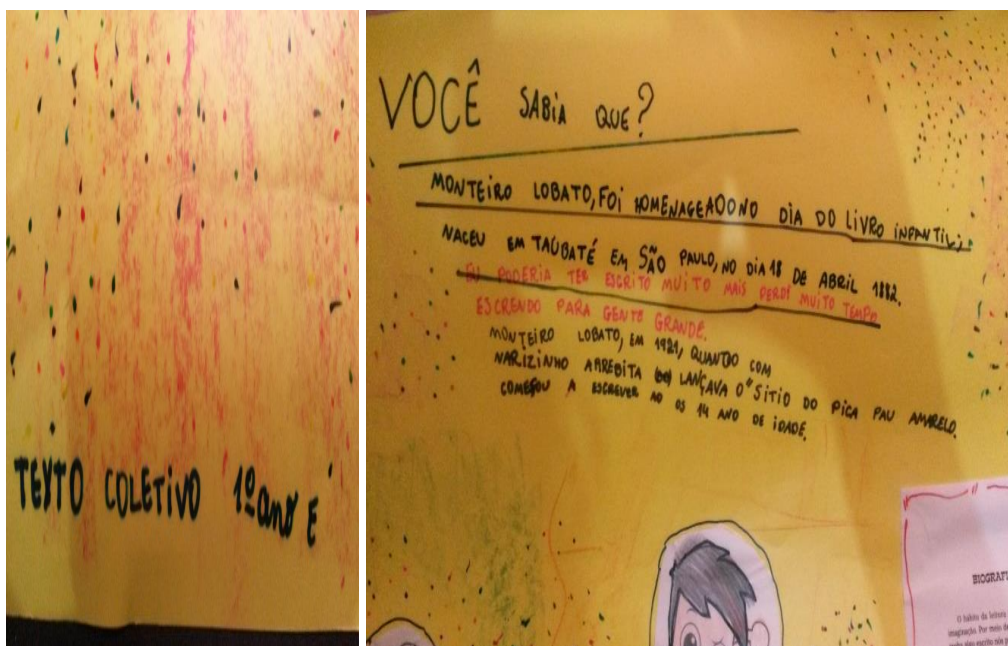 TEXTO COLETIVO 1º ano E
VOCÊ SABIA QUE?
MONTEIRO LOBATO, FOI HOMENAGEADONO DIA DO LIVRO INFANTIL,
NACEU EM TAUBATÉ EM SÃO PAULO, NO DIA 18 DE ABRIL 1882.
EU PODERIA TER ESCRITO MUITO MAIS PERDI MUITO TEMPO
ESCRENDO PARA GENTE GRANDE.
MONTEIRO LOBATO, EM 1921, QUANDO COM
NARIZINHO ARREBITA LANÇAVA O "SITIO DO PICA PAU AMARELO.
COMEÇOU A ESCREVER AO OS 14 ANO DE IDADE.
BIOGRAFI
O hábito da leitura
imaginação. Por meio de